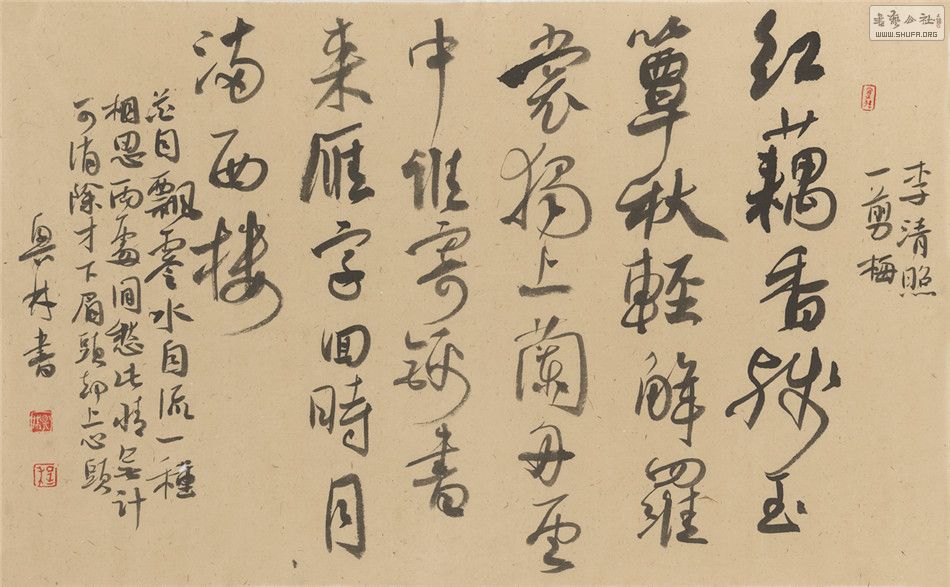 書藝公社
WWW.SHUFA.ORG
李清照
一剪梅
红藕香残玉
簟秋輕解羅
裳獨上蘭舟雲
中誰寄錦書
来雁字回時月
满西楼
花自飄零水自流一種
相思兩處閒愁此情無計
可消除才下眉頭却上心頭
林書